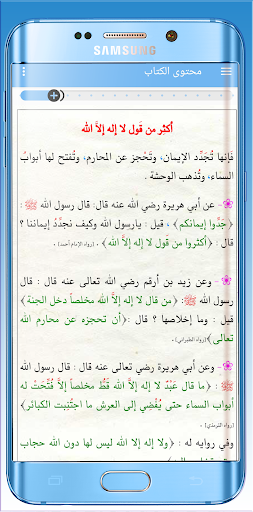 SAMSUNG
محتوى الكتاب
أكثر من قول لا إله إلاَّ الله
فَإنها تُجَدِّد الإيمان، وتَحْجز عن المحارم، وتُفتح لها أبوابُ
السماء، وتُذهب الوحشة .
- عن أبي هريرة رضي الله عنه قال: قال رسول الله
ﷺ: ﴿ جَدِّدوا إيمانكم ﴾ ، قيل : يارسول الله وكيف نجدِّدُ إيماننا ؟
قال : ﴿ أكثروا من قَول لا إله إلاَّ الله ﴾ . (رواه الإمام أحمد) .
- وعن زيد بن أرقم رضي الله تعالى عنه قال : قال
رسول الله ﷺ : ﴿ من قال لا إله إلاَّ الله مخلصاً دخل الجنة ﴾
قيل : وما إخلاصها ؟ قال : ﴿ أن تحجزه عن محارم الله
تعالى ﴾ . (رواه الطبراني) .
- وعن أبي هريرة رضي الله تعالى عنه قال : قال رسول الله
ﷺ : ﴿ ما قال عَبْدٌ لا إله إلاَّ الله قَطُّ مخلصاً إلاَّ فُتِّحَتْ له
أبواب السماء حتى يُفْضِي إلى العرش ما اجتُنِبت الكبائر ﴾
(رواه الترمذي) .
وفي روايه له : ﴿ ولا إله إلا الله ليس لها دون الله حجاب